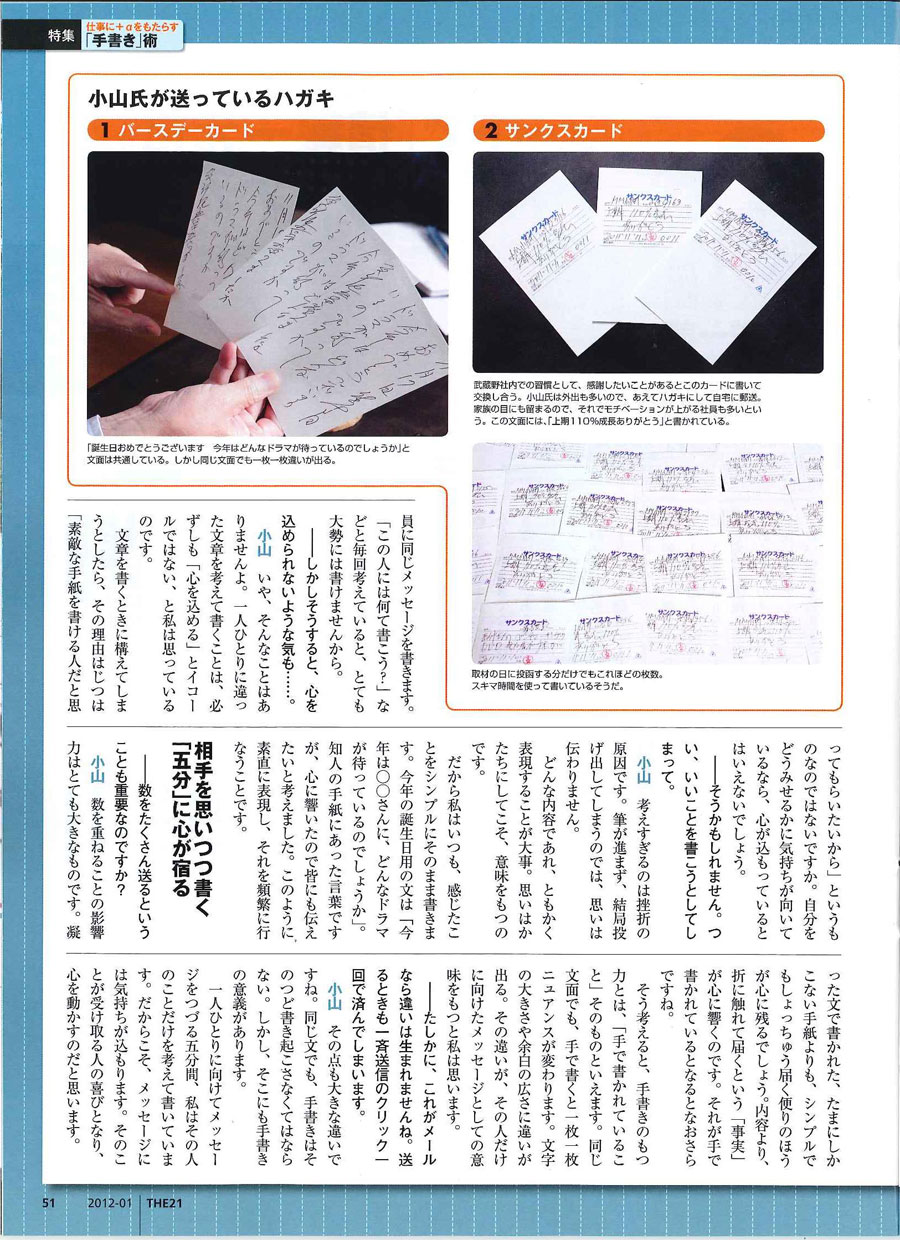 特集
仕事に+αをもたらす
「手書き」術
小山氏が送っているハガキ
1 バースデーカード
「誕生日おめでとうございます　今年はどんなドラマが待っているのでしょうか」と
文面は共通している。しかし同じ文面でも一枚一枚違いが出る。
2 サンクスカード
サンクスカード
サンクスカード
サンクスカード
武蔵野社内での習慣として、感謝したいことがあるとこのカードに書いて
交換し合う。小山氏は外出も多いので、あえてハガキにして自宅に郵送。
家族の目にも留まるので、それでモチベーションが上がる社員も多いとい
う。この文面には、「上期110%成長ありがとう」と書かれている。
取材の日に投函する分だけでもこれほどの枚数。
スキマ時間を使って書いているそうだ。
員に同じメッセージを書きます。
「この人には何て書こう?」な
どと毎回考えていると、とても
大勢には書けませんから。
――しかしそうすると、心を
込められないような気も……。
小山　いや、そんなことはあ
りませんよ。一人ひとりに違っ
た文章を考えて書くことは、必
ずしも「心を込める」とイコー
ルではない、と私は思っている
のです。
文章を書くときに構えてしま
うとしたら、その理由はじつは
「素敵な手紙を書ける人だと思
ってもらいたいから」というも
のなのではないですか。自分を
どうみせるかに気持ちが向いて
いるなら、心が込もっていると
はいえないでしょう。
――そうかもしれません。つ
い、いいことを書こうとしてし
まって。
小山　考えすぎるのは挫折の
原因です。筆が進まず、結局投
げ出してしまうのでは、思いは
伝わりません。
どんな内容であれ、ともかく
表現することが大事。思いはか
たちにしてこそ、意味をもつの
です。
だから私はいつも、感じたこ
とをシンプルにそのまま書きま
す。今年の誕生日用の文は「今
年は〇〇さんに、どんなドラマ
が待っているのでしょうか」。
知人の手紙にあった言葉です
が、心に響いたので皆にも伝え
たいと考えました。このように
素直に表現し、それを頻繁に行
なうことです。
相手を思いつつ書く
「五分」に心が宿る
――数をたくさん送るという
ことも重要なのですか?
小山　数を重ねることの影響
力はとても大きなものです。凝
った文で書かれた、たまにしか
こない手紙よりも、シンプルで
もしょっちゅう届く便りのほう
が心に残るでしょう。内容より、
折に触れて届くという「事実」
が心に響くのです。それが手で
書かれているとなるとなおさら
ですね。
そう考えると、手書きのもつ
力とは、「手で書かれているこ
と」そのものといえます。同じ
文面でも、手で書くと一枚一枚
ニュアンスが変わります。文字
の大きさや余白の広さに違いが
出る。その違いが、その人だけ
に向けたメッセージとしての意
味をもつと私は思います。
――たしかに、これがメール
なら違いは生まれませんね。送
るときも一斉送信のクリック一
回で済んでしまいます。
小山　その点も大きな違いで
すね。同じ文でも、手書きはそ
のつど書き起こさなくてはなら
ない。しかし、そこにも手書き
の意義があります。
一人ひとりに向けてメッセー
ジをつづる五分間、私はその人
のことだけを考えて書いていま
す。だからこそ、メッセージに
は気持ちが込もります。そのこ
とが受け取る人の喜びとなり、
心を動かすのだと思います。
51　2012-01 THE21